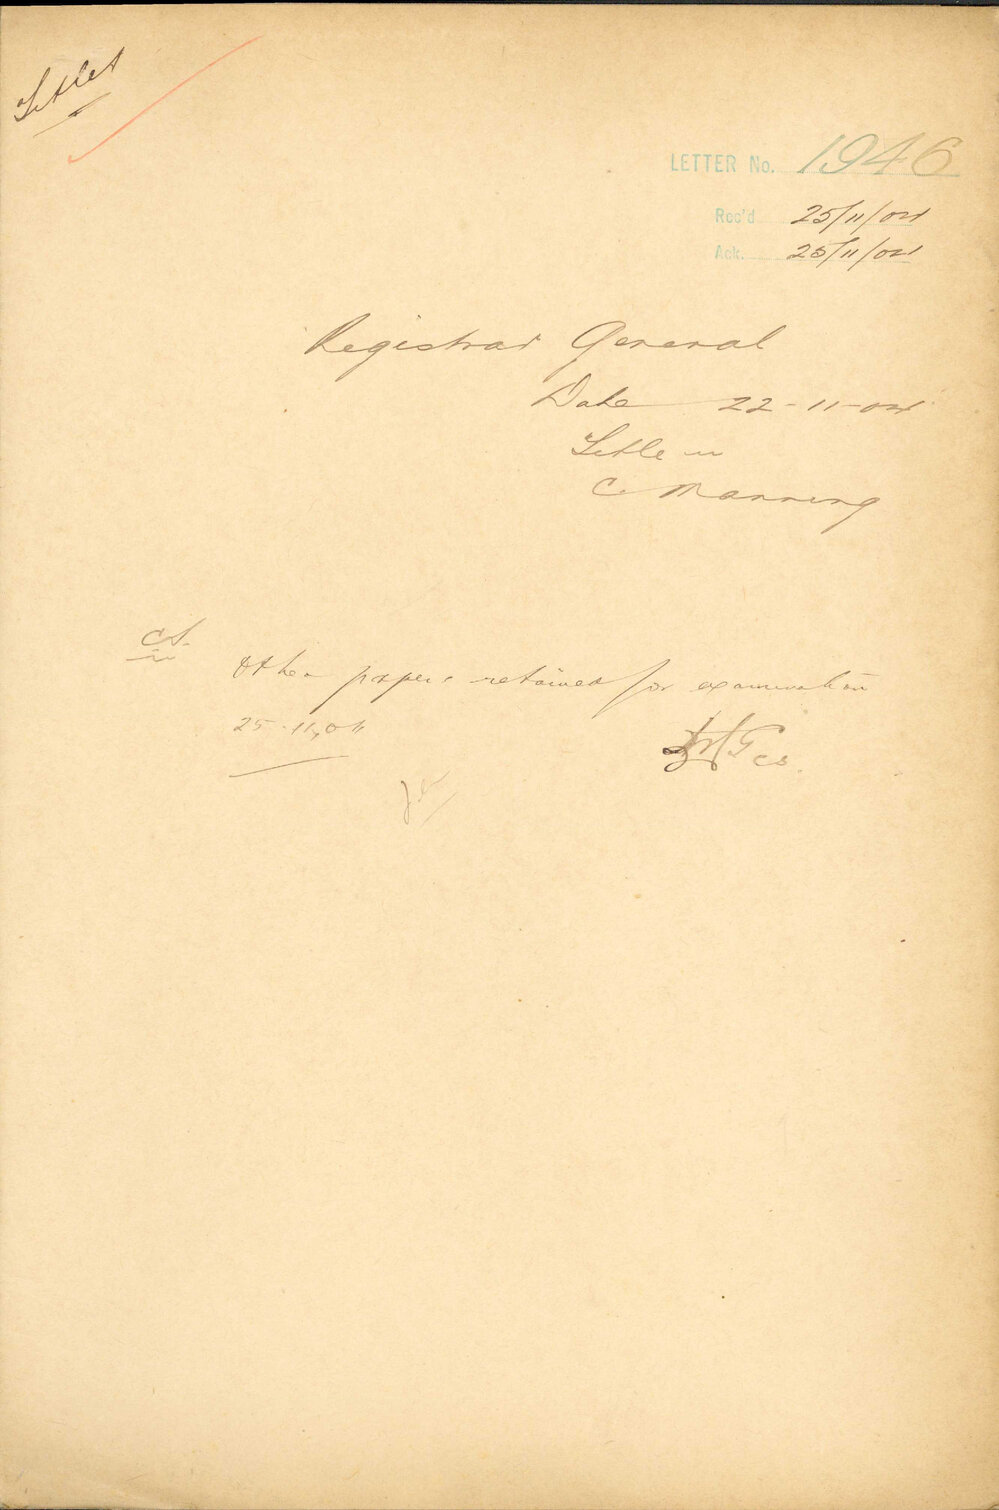 Titles
LETTER No. 1946
Rec'd 25/11/04
Ack. 25/11/04
Registrar General
Date 22-11-04
Title in
C. Manning
CS.
Other papers retained for examination
25-11-04
CS.